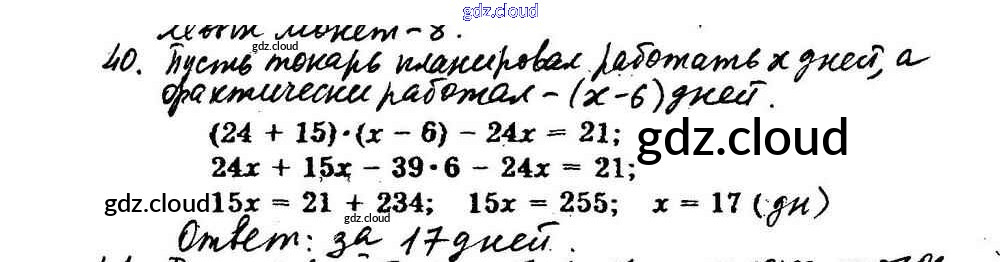 gdz.cloud
может – 8.
gdz.cloud
40. Пусть токарь планировал работать x дней, а
фактически работал – (x – 6) дней.
(24 + 15)·(x – 6) – 24x = 21;
gdz.cloud
24x + 15x – 39·6 – 24x = 21;
gdz.cloud
15x = 21 + 234; 15x = 255; x = 17 (дн)
gdz.cloud
Ответ: за 17 дней.